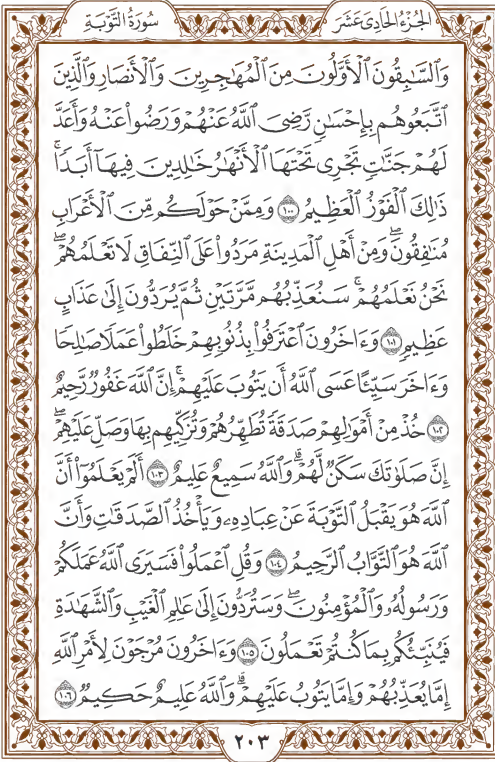 سُورَةُ التَّوْبَةِ
الجُزْءُ الحَادِي عَشَرَ
وَٱلسَّٰبِقُونَ ٱلْأَوَّلُونَ مِنَ ٱلْمُهَٰجِرِينَ وَٱلْأَنصَارِ وَٱلَّذِينَ
ٱتَّبَعُوهُم بِإِحْسَٰنٖ رَّضِيَ ٱللَّهُ عَنْهُمْ وَرَضُوا۟ عَنْهُ وَأَعَدَّ
لَهُمْ جَنَّٰتٖ تَجْرِي تَحْتَهَا ٱلْأَنْهَٰرُ خَٰلِدِينَ فِيهَآ أَبَدٗاۚ
ذَٰلِكَ ٱلْفَوْزُ ٱلْعَظِيمُ ١٠٠ وَمِمَّنْ حَوْلَكُم مِّنَ ٱلْأَعْرَابِ
مُنَٰفِقُونَۖ وَمِنْ أَهْلِ ٱلْمَدِينَةِ مَرَدُوا۟ عَلَى ٱلنِّفَاقِ لَا تَعْلَمُهُمْۖ
نَحْنُ نَعْلَمُهُمْۚ سَنُعَذِّبُهُم مَّرَّتَيْنِ ثُمَّ يُرَدُّونَ إِلَىٰ عَذَابٍ
عَظِيمٖ ١٠١ وَءَاخَرُونَ ٱعْتَرَفُوا۟ بِذُنُوبِهِمْ خَلَطُوا۟ عَمَلٗا صَٰلِحٗا
وَءَاخَرَ سَيِّئًا عَسَى ٱللَّهُ أَن يَتُوبَ عَلَيْهِمْۚ إِنَّ ٱللَّهَ غَفُورٞ رَّحِيمٌ
١٠٢ خُذْ مِنْ أَمْوَٰلِهِمْ صَدَقَةٗ تُطَهِّرُهُمْ وَتُزَكِّيهِم بِهَا وَصَلِّ عَلَيْهِمْۖ
إِنَّ صَلَوٰتَكَ سَكَنٞ لَّهُمْۗ وَٱللَّهُ سَمِيعٌ عَلِيمٌ ١٠٣ أَلَمْ يَعْلَمُوٓا۟ أَنَّ
ٱللَّهَ هُوَ يَقْبَلُ ٱلتَّوْبَةَ عَنْ عِبَادِهِۦ وَيَأْخُذُ ٱلصَّدَقَٰتِ وَأَنَّ
ٱللَّهَ هُوَ ٱلتَّوَّابُ ٱلرَّحِيمُ ١٠٤ وَقُلِ ٱعْمَلُوا۟ فَسَيَرَى ٱللَّهُ عَمَلَكُمْ
وَرَسُولُهُۥ وَٱلْمُؤْمِنُونَۖ وَسَتُرَدُّونَ إِلَىٰ عَٰلِمِ ٱلْغَيْبِ وَٱلشَّهَٰدَةِ
فَيُنَبِّئُكُم بِمَا كُنتُمْ تَعْمَلُونَ ١٠٥ وَءَاخَرُونَ مُرْجَوْنَ لِأَمْرِ ٱللَّهِ
إِمَّا يُعَذِّبُهُمْ وَإِمَّا يَتُوبُ عَلَيْهِمْۗ وَٱللَّهُ عَلِيمٌ حَكِيمٞ ١٠٦
٢٠٣